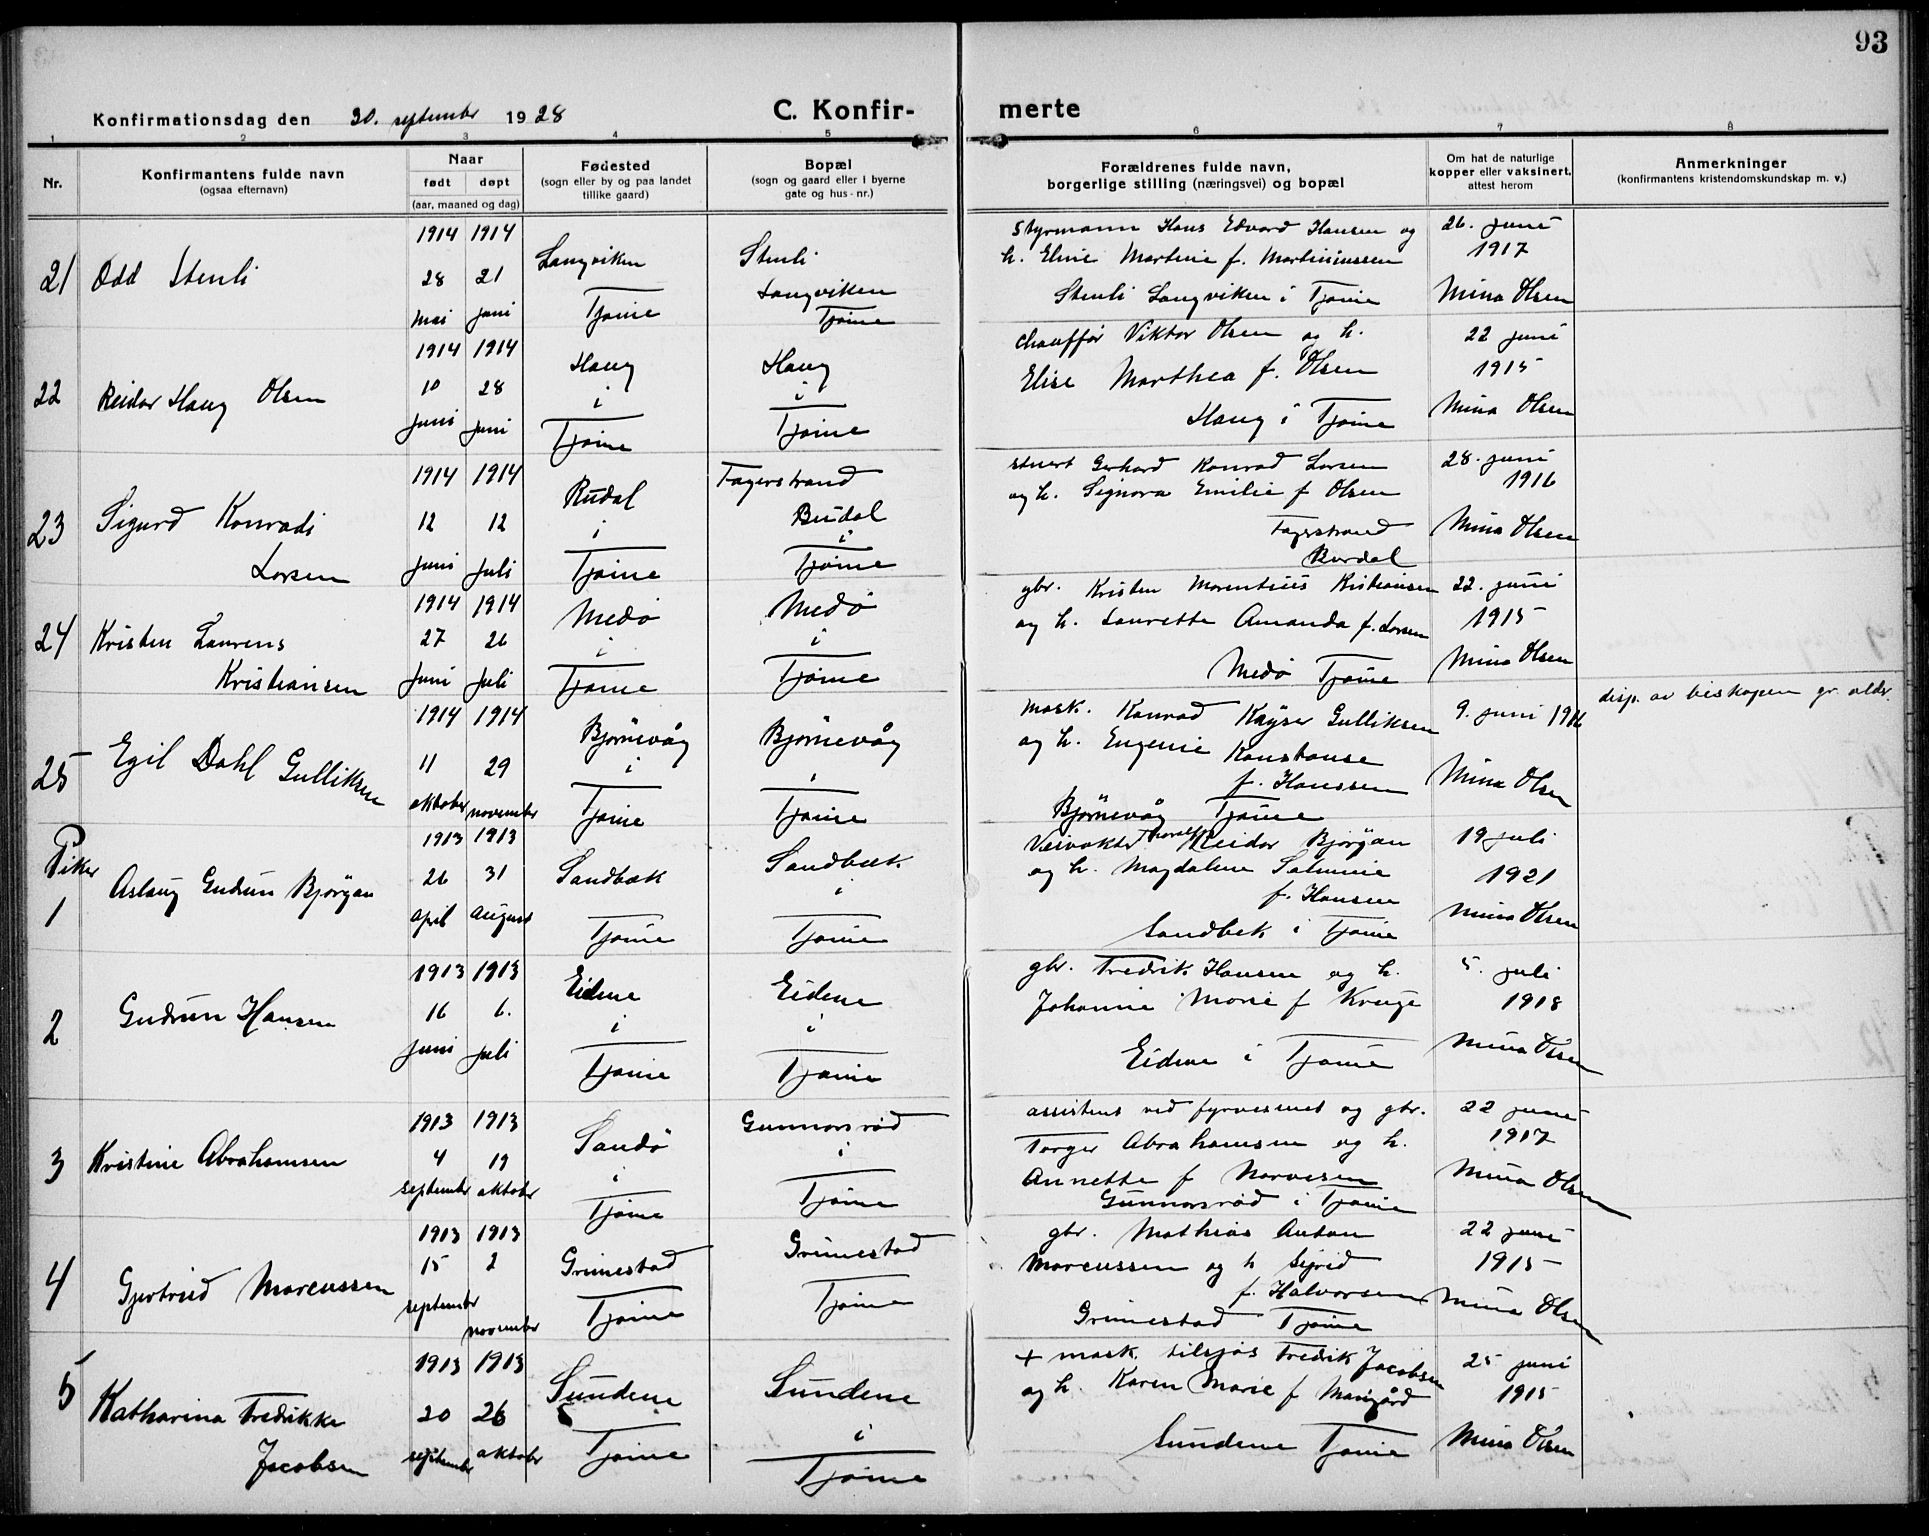 93
Konfirmationsdag den 30. september 1928
C. Konfir-
merte
1 2 3 4 5 6 7 8
Nr.
Konfirmantens fulde navn
(ogsaa efternavn)
Naar
født døpt
(aar, maaned og dag)
Fødested
(sogn eller by og paa landet
tillike gaard)
Bopæl
(sogn og gaard eller i byerne
gate og hus-nr.)
Forældrenes fulde navn,
borgerlige stilling (næringsvei) og bopæl
Om hat de naturlige
kopper eller vaksinert,
attest herom
Anmerkninger
(konfirmantens kristendomskundskap m. v.)
21 Odd Stenli
1914 1914
28 21
mai juni
Langviken
Tjøme
Stenli
Langviken
Tjøme
Styrmann Hans Edvard Hansen og
h. Eline Martine f. Martiniussen
Stenli Langviken i Tjøme
26. juni
1917
Mina Olsen
22 Reidar Haug Olsen
1914 1914
10 28
juni juni
Haug
i
Tjøme
Haug
i
Tjøme
chauffør Viktor Olsen og h.
Elise Marthea f. Olsen
Haug i Tjøme
22 juni
1915
Mina Olsen
23 Sigurd Konradi
Larsen
1914 1914
12 12
juni juli
Budal
i
Tjøme
Fagerstrand
Budal
i
Tjøme
stuert Gerhard Konrad Larsen
og h. Signora Emilie f Olsen
Fagerstrand
Burdal
28. juni
1916
Mina Olsen
24 Kristen Laurens
Kristiansen
1914 1914
27 26
juni juli
Medø
i
Tjøme
Medø
i
Tjøme
gbr. Kristen Morentius Kristiansen
og h. Laurette Amanda f. Larsen
Medø Tjøme
22. juni
1915
Mina Olsen
25 Egil Dahl Gulliksen
1914 1914
11 29
oktober november
Bjørnevåg
i
Tjøme
Bjørnevåg
i
Tjøme
mask. Konrad Kayser Gulliksen
og h. Eugenie Konstanse
f. Hanssen
Bjørnevåg Tjøme
9. juni 1916
Mina Olsen
disp. av biskopen gr. alder
Piker
1 Aslaug Gudrun Bjørgan
1913 1913
26 31
april august
Sandbæk
Tjøme
Sandbæk
i
Tjøme
Veivokter Thoralf Reidar Bjørgan
og h. Magdalene Salmine
f. Hansen
Sandbek i Tjøme
19 juli
1921
Mina Olsen
2 Gudrun Hansen
1913 1913
16 6.
juni juli
Eidene
i
Tjøme
Eidene
i
Tjøme
gbr. Fredrik Hansen og h.
Johanne Marie f Kruge
Eidene i Tjøme
5. juli
1918
Mina Olsen
3 Kristine Abrahamsen
1913 1913
4 19
september oktober
Sandø
i
Tjøme
Gunnarsrød
i
Tjøme
assistens ved fyrvesenet og gbr.
Torger Abrahamsen og h.
Annette f Narvesen
Gunnarsrød i Tjøme
22 juni
1917
Mina Olsen
4 Gjertrud Marcussen
1913 1913
15 2
september november
Grimestad
Tjøme
Grimestad
Tjøme
gbr. Mathias Anton
Marcussen og h Sigrid
f. Halvorsen
Grimestad Tjøme
22 juni
1915
Mina Olsen
5 Katharina Fredrikke
Jacobsen
1913 1913
20 26
september oktober
Sundene
i
Tjøme
Sundene
i
Tjøme
+ mask. tilsjøs Fredrik Jacobsen
og h. Karen Marie f
Sundene Tjøme
25 juni
1915
Mina Olsen